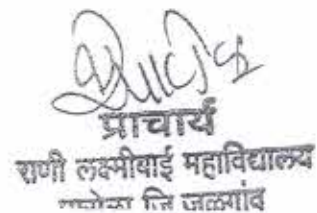 प्राचार्य
राणी लक्ष्मीबाई महाविद्यालय
जि जळगांव